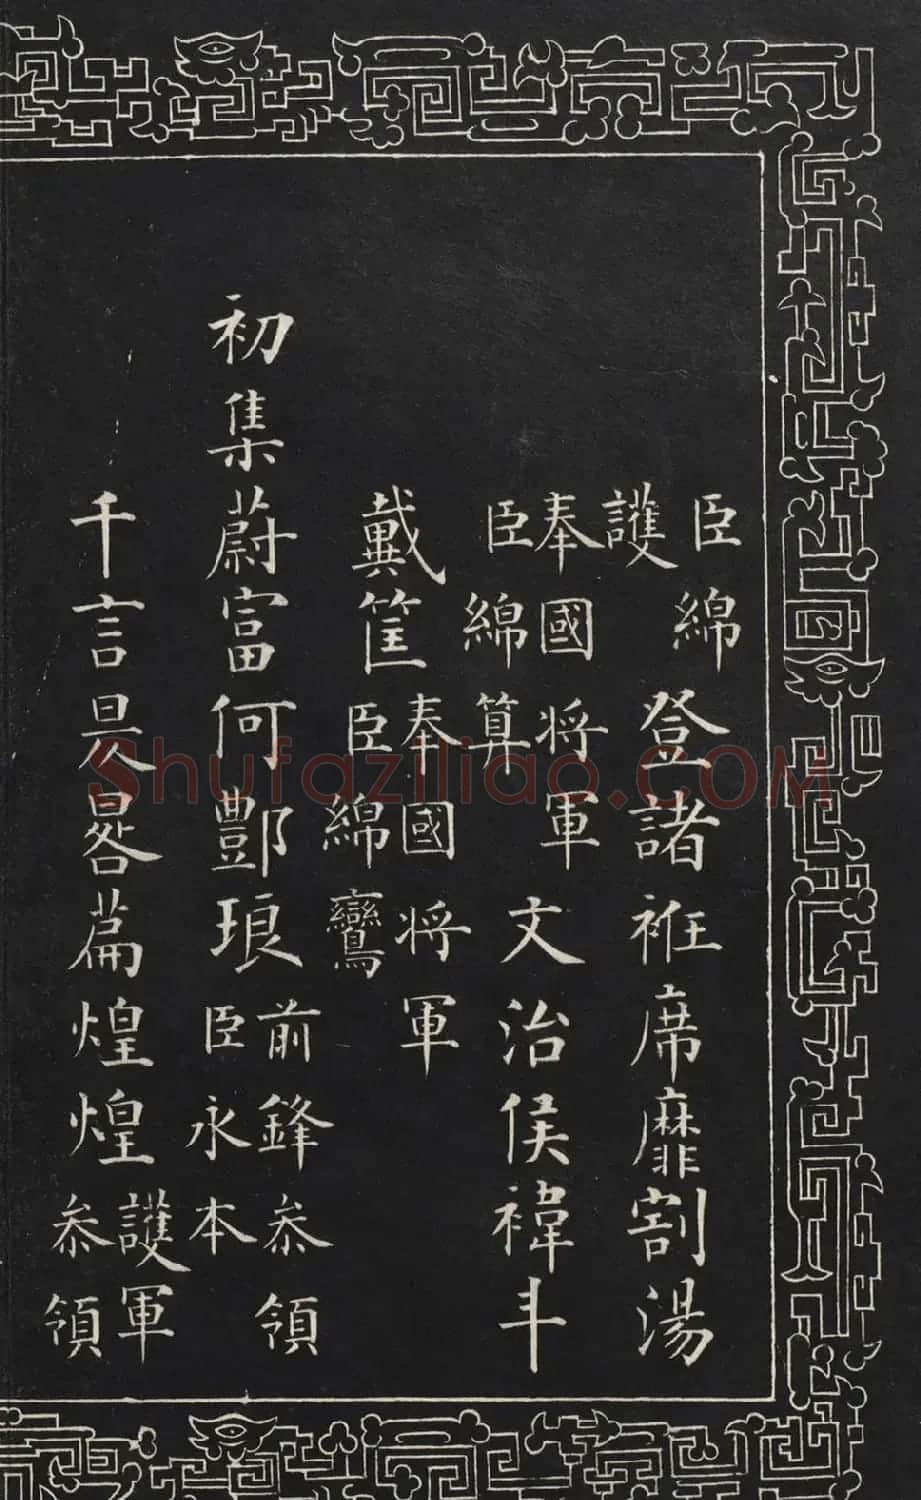 臣綿
護
登諸袵席靡割湯
奉國将軍
臣綿算
文治侯褘丰
戴筐
奉國将軍
臣綿鸞
初集蔚富何酆琅
前鋒叅領
臣永本
千言昃晷篇煌煌
護軍
叅領
Shufaziliao.COM